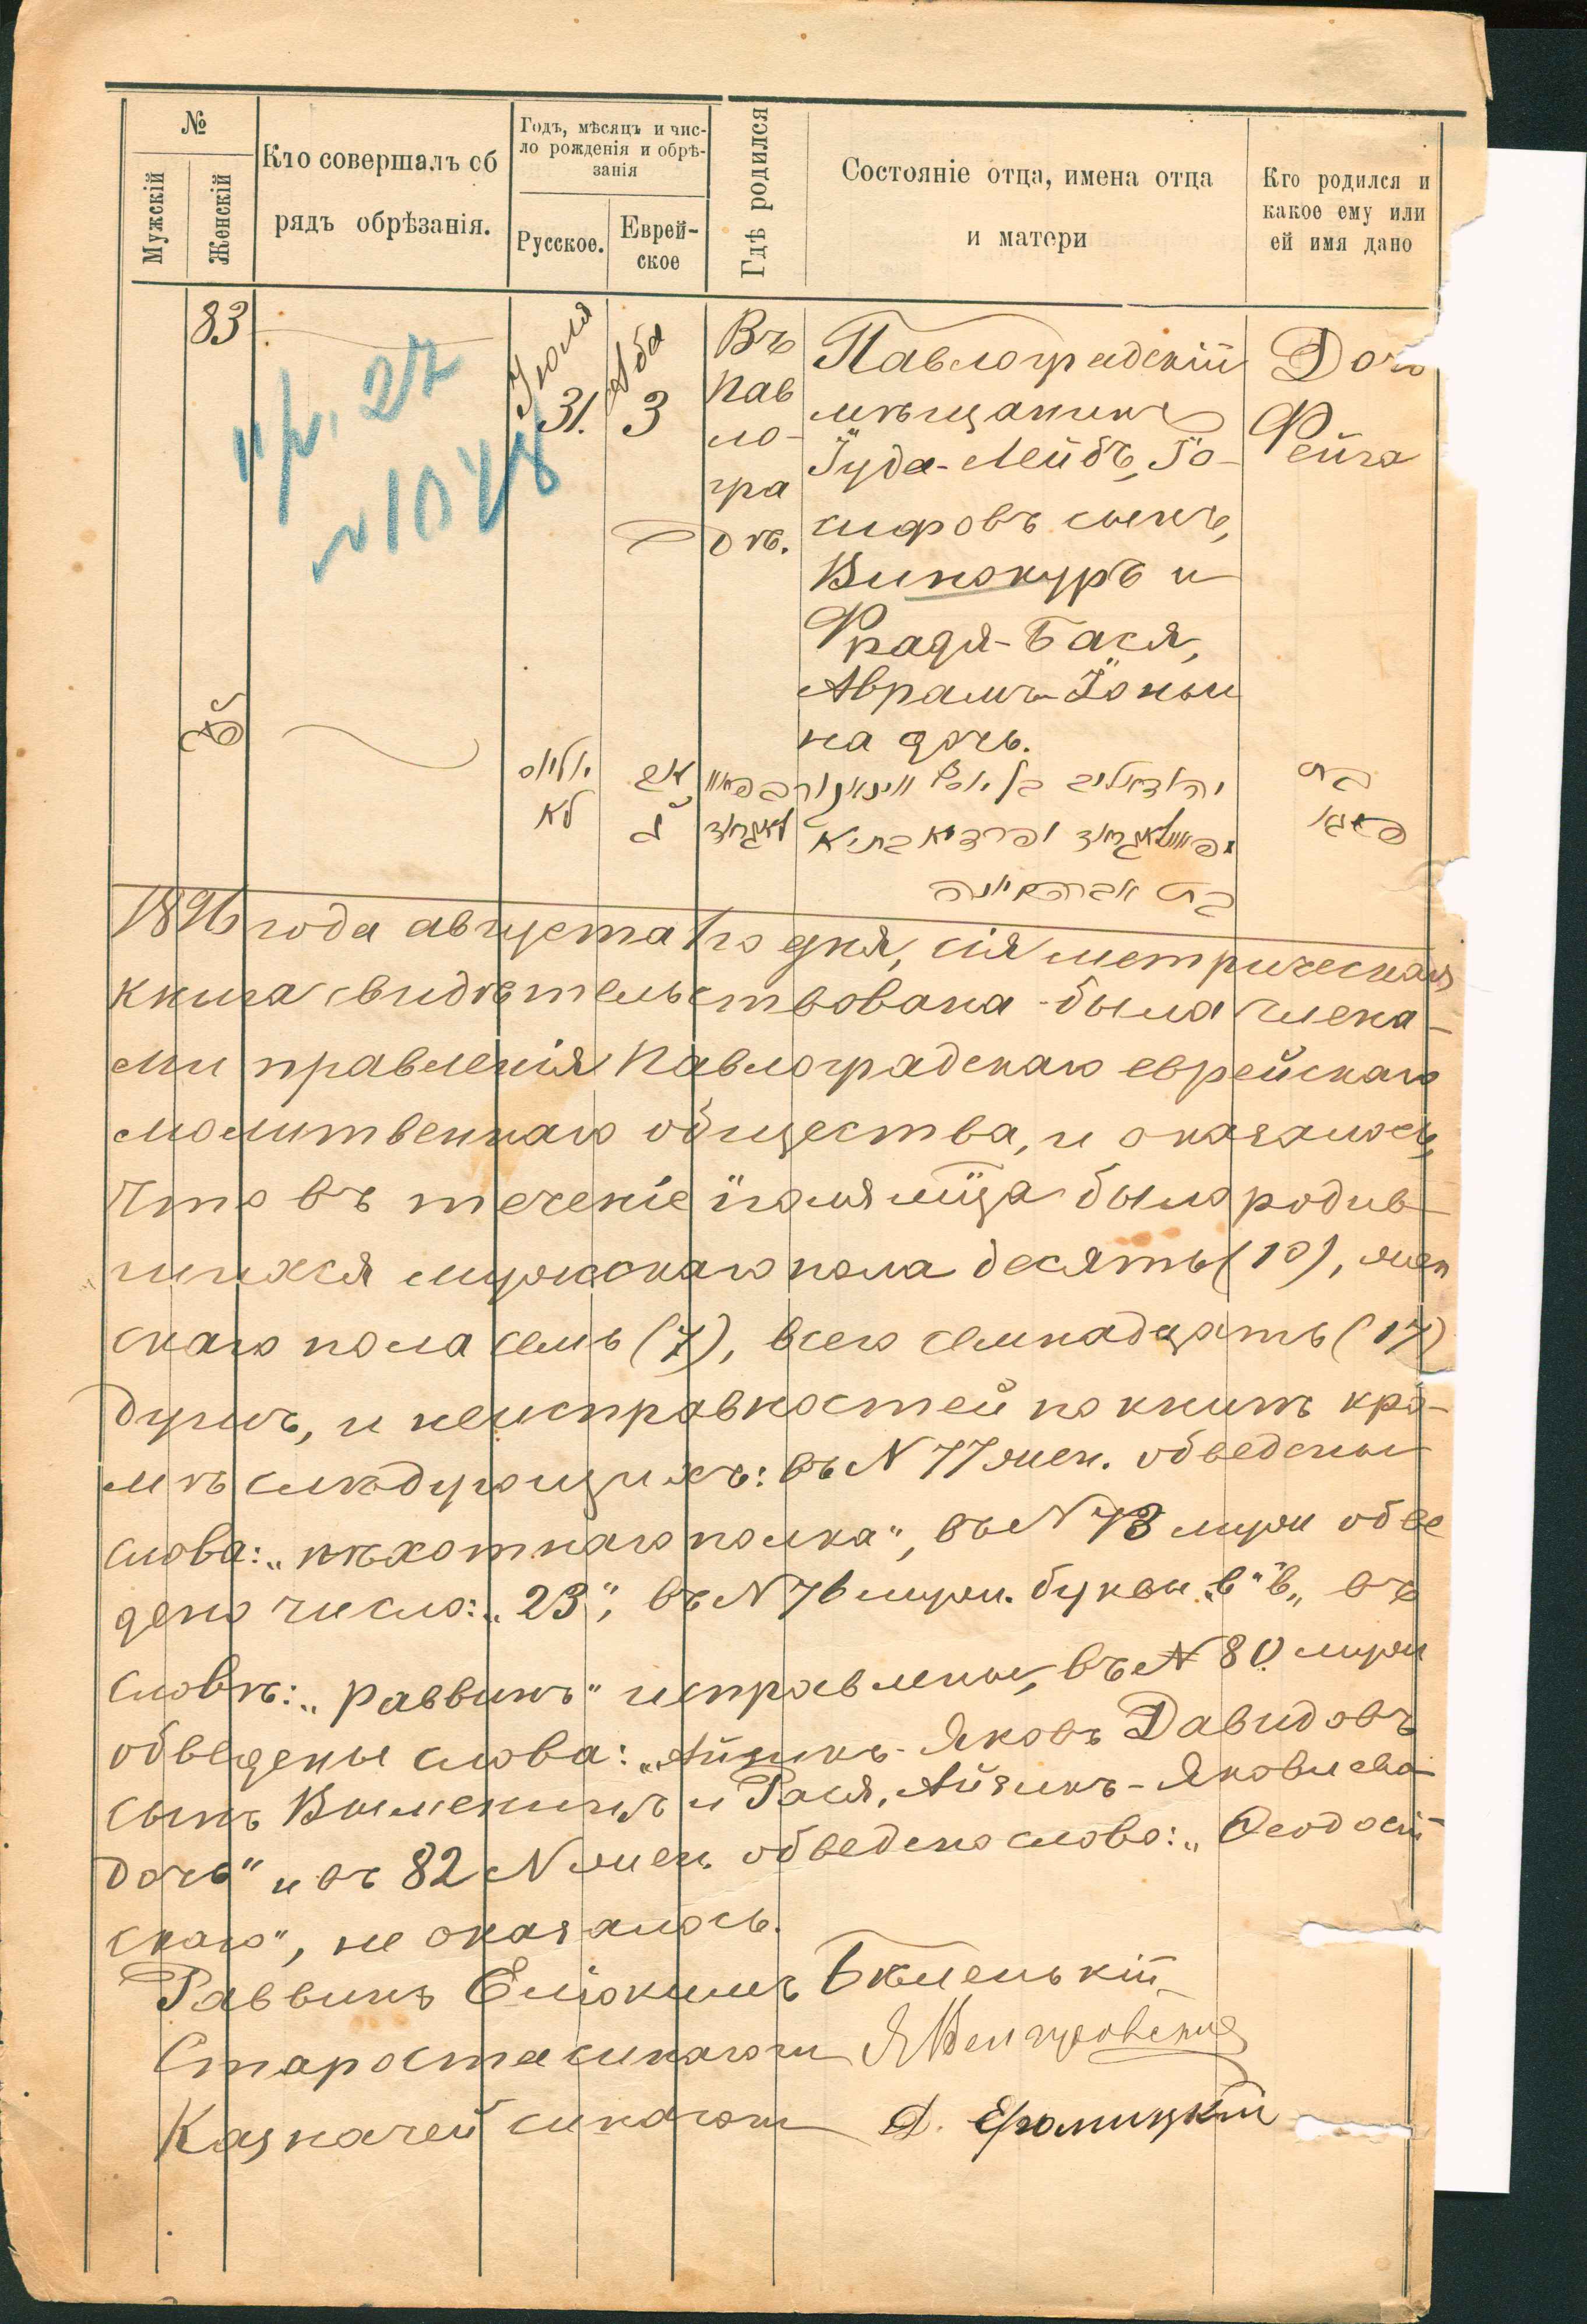 №
Мужскій
Женскій
Кто совершалъ об
рядъ обрѣзанія.
Годъ, мѣсяцъ и чис-
ло рожденія и обрѣ-
занія
Русское.
Еврей-
ское
Гдѣ родился
Состояніе отца, имена отца
и матери
Кто родился и
какое ему или
ей имя дано
83
Іюля
31.
Аба
3
Въ
Пав
ло-
гра
дѣ.
Павлоградскій
мѣщанинъ
Іуда-Лейбъ, Іо-
сифовъ сынъ,
Винокуръ и
Фрадя-Бася,
Аврамъ-Іоньи
на дочь.
Дочь
Фейга
פג
יוליוס
לא
אב
ג
בת
פייגא
1896 года августа 1го дня, сія метрическая
книга свидѣтельствована была члена-
ми правленія Павлоградскаго еврейскаго
молитвеннаго общества, и оказалось,
что въ теченіе іюля мца было родив-
шихся мужскаго пола десять (10), жен
скаго пола семь (7), всего семнадцать (17)
душъ, и неисправностей по книгѣ кро-
мѣ слѣдующихъ: въ N 77 жен. обведены
слова: „пѣхотнаго полка“, въ N 73 муж обве
дено число: „23“, въ N 76 муж. буквы „в“ „в„ въ
словѣ: „раввинъ“ исправлены, въ N 80 муж
обведены слова: „Айзикъ-Яковъ Давидовъ
сынъ и Рася, Айзикъ-Яковлева
дочь“ и въ 82 N жен обведено слово: „Ѳеодосій
скаго“, не оказалось.
Раввинъ Еліокимъ Бѣленькій
Староста синагоги
Казначей синагоги